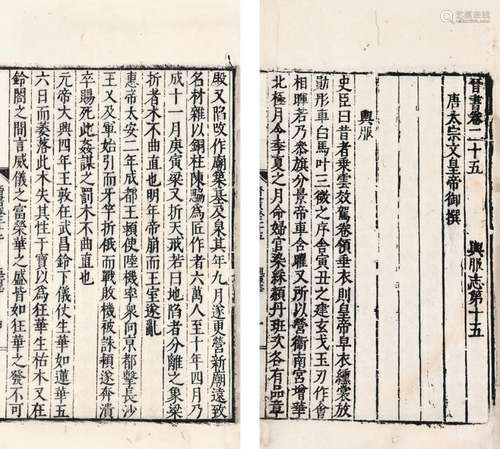 晉書卷二十五 輿服志第十五
唐太宗文皇帝御撰
輿服
史臣曰昔者乘雲效駕卷領垂衣則皇帝皁衣纁裳放
勛彤車白馬叶三徵之序舍寅丑之建玄戈玉刃作會
相暉若乃參旗分景帝車含曜又所以營衛南宮增華
北極月令季夏之月命婦官染綵赬丹班次各有品章
殿又陷改作廟築基及泉其年九月遂更營新廟遠致
名材雜以銅柱陳勰為匠作者六萬人至十年四月乃
成十一月庚寅梁又折天戒若曰地陷者分離之象梁
折者木不曲直也明年帝崩而王室遂亂
惠帝太安二年成都王穎使陸機率衆向京都擊長沙
王乂及軍始引而牙竿折俄而戰敗機被誅穎遂奔潰
卒賜死此姦謀之罰木不曲直也
元帝大興四年王敦在武昌鈴下儀仗生華如蓮華五
六日而萎落此木失其性干寶以為狂華生枯木又在
鈴閣之間言威儀之富榮華之盛皆如狂華之發不可